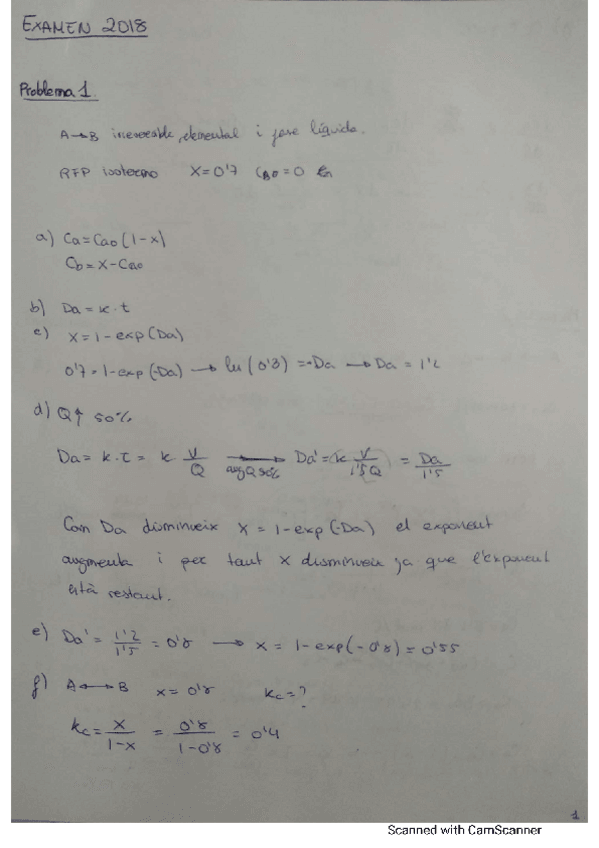 EXAMEN 2018
Problema 1.
A→B irreversible, elemental i fase líquida.
RFP isotermo X=0'7 CB0=0
a) Ca=Cao(1-x)
Cb=X-Cao
b) Da=k·t
c) X=1-exp(Da)
0'7=1-exp(-Da) → ln(0'3)=-Da → Da=1'2
d) Q↑ 50%
Da=k·τ=k V/Q → aug Q 50% Da'=k V/1'5Q = Da/1'5
Com Da disminueix X=1-exp(-Da) el exponent
augmenta i per tant X disminueix ja que l'exponent
està restant.
e) Da'=1'2/1'5=0'8 → X=1-exp(-0'8)=0'55
f) A↔B x=0'8 kc=?
kc=x/1-x=0'8/1-0'8=0'4
1
Scanned with CamScanner